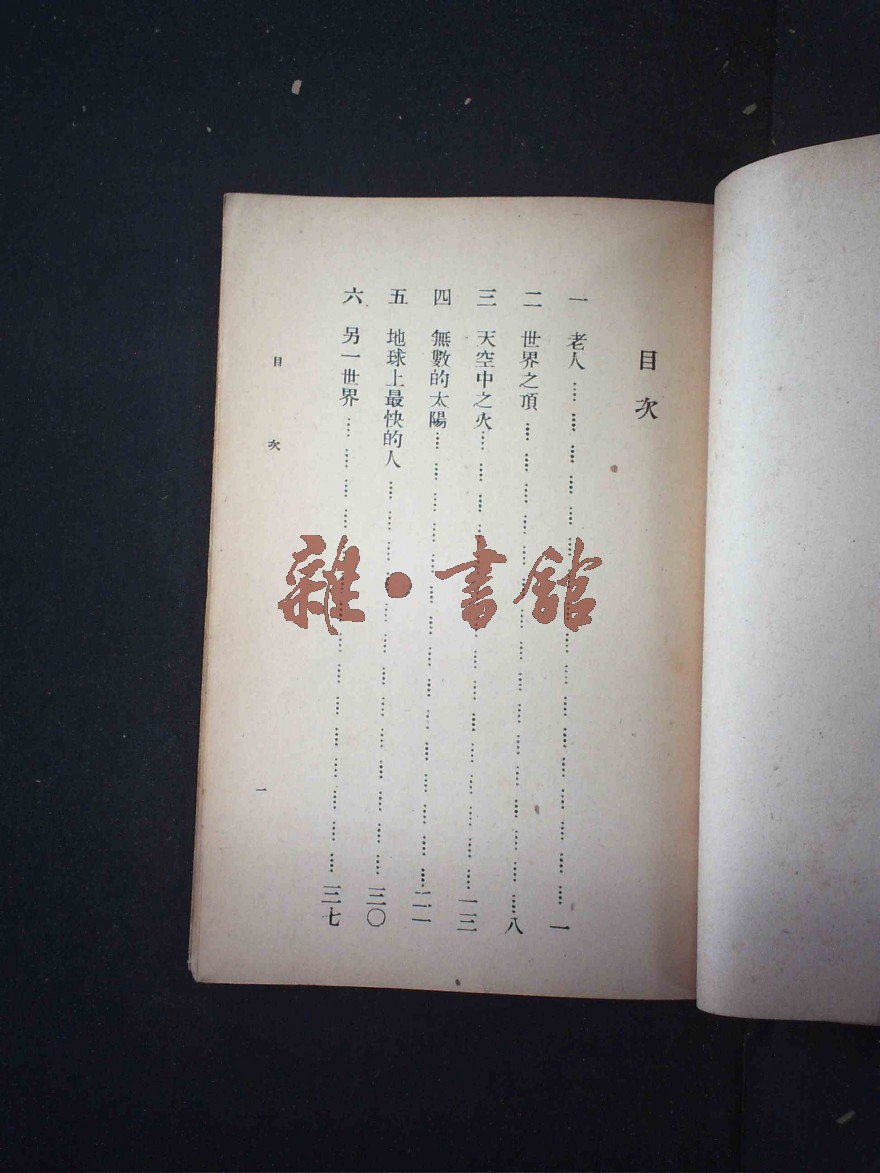 目次
一 老人……一
二 世界之頂……八
三 天空中之火……一三
四 無數的太陽……二一
五 地球上最快的人……三〇
六 另一世界……三七
目次
一
雜·書館